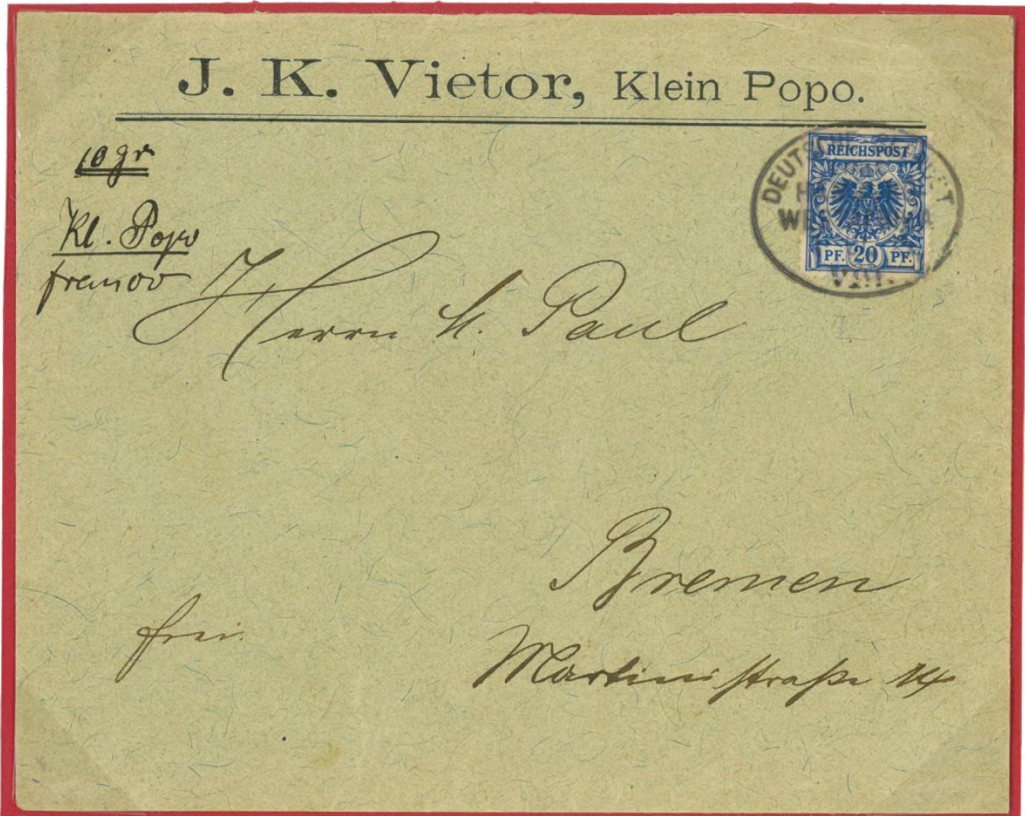 J. K. Vietor, Klein Popo.
10 gr
Kl. Popo
franco
REICHSPOST
PF. 20 PF.
DEUTSCHE
VIII.
Herrn h. Paul
Bremen
frei.
Martinistraße 14